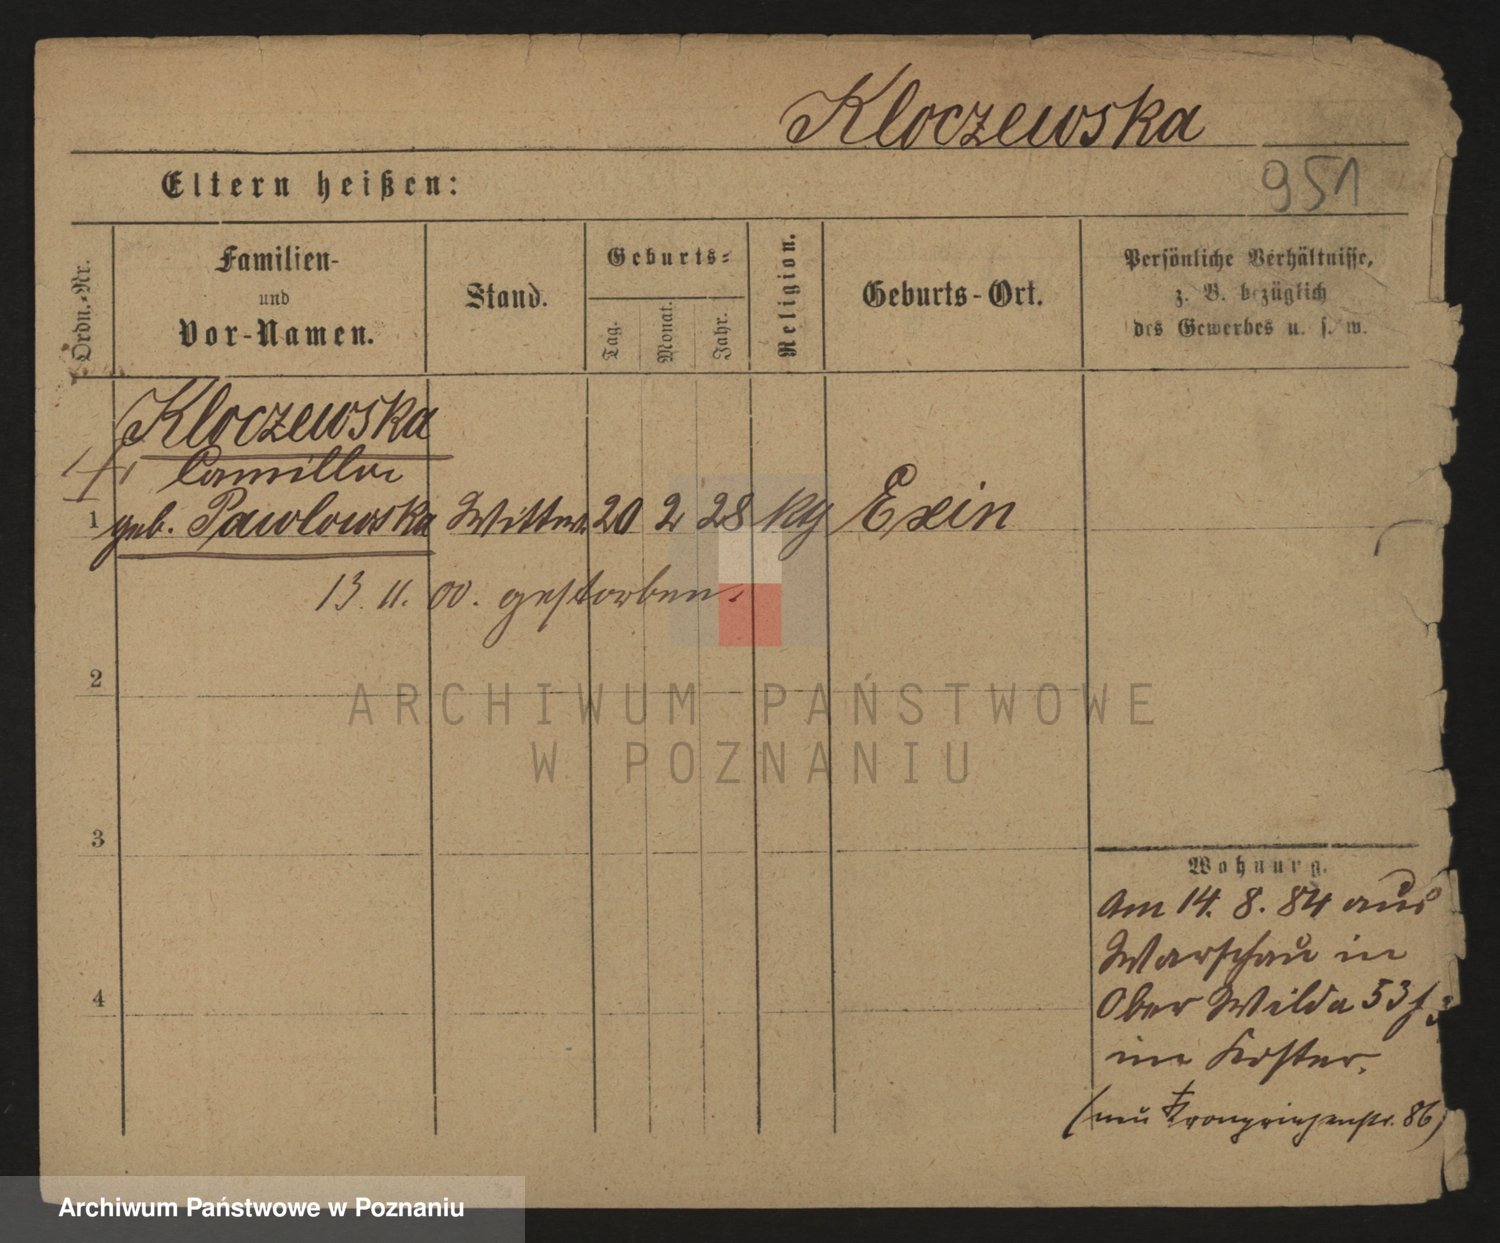 Kloczewska
Eltern heißen:
951
Ordn.-Nr.
Familien-
und
Vor-Namen.
Stand.
Geburts-
Tag.
Monat.
Jahr.
Religion.
Geburts-Ort.
Persönliche Verhältnisse,
z. B. bezüglich
des Gewerbes u. s. w.
Kloczewska
Camilla
1 geb. Pawlowska Wittwe 20 2 28 kg Exin
13. 11. 00. gestorben.
2
ARCHIWUM PAŃSTWOWE
W POZNANIU
3
4
Wohnung.
Am 14. 8. 84 aus
Warschau in
Ober Wilda 53
im Kloster.
(neu Kronprinzenstr. 86)
Archiwum Państwowe w Poznaniu